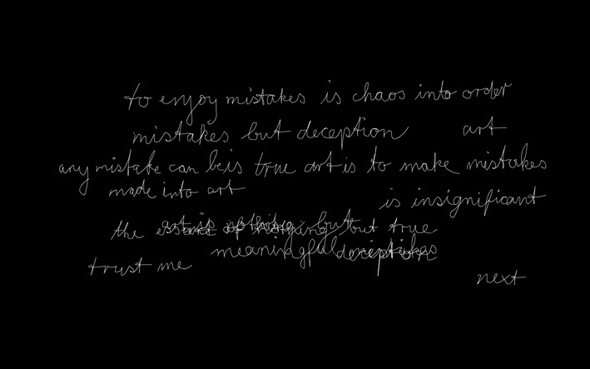 to enjoy mistakes is chaos into order
mistakes but deception art
any mistake can be is true art is to make mistakes
made into art
is insignificant
the but true
meaningful
trust me
next